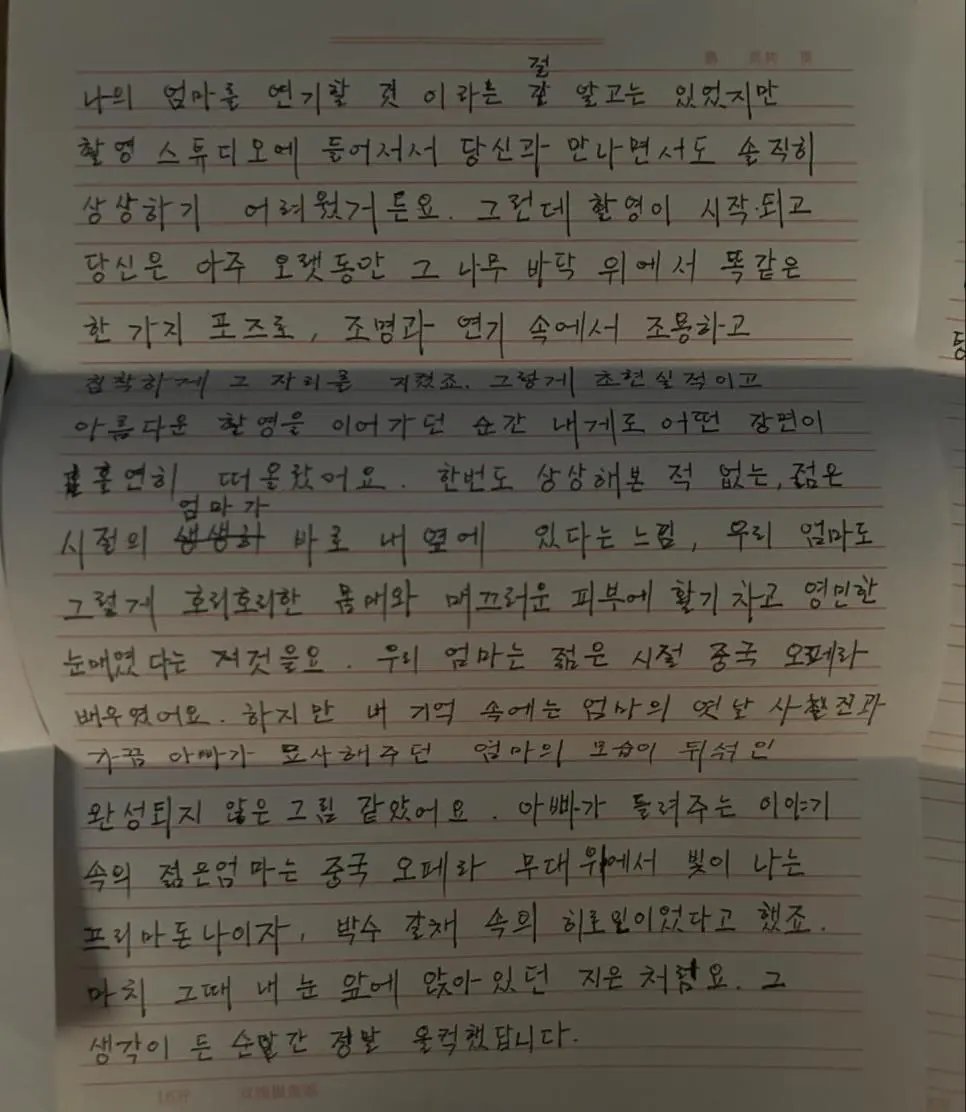 나의 엄마를 연기할 것 이라는 잘 알고는 있었지만
촬영 스튜디오에 들어서서 당신과 만나면서도 솔직히
상상하기 어려웠거든요. 그런데 촬영이 시작되고
당신은 아주 오랫동안 그 나무 바닥 위에서 똑같은
한 가지 포즈로, 조명과 연기 속에서 조용하고
침착하게 그 자리를 지켰죠. 그렇게 초현실적이고
아름다운 촬영을 이어가던 순간 내게로 어떤 장면이
홀연히 떠올랐어요. 한번도 상상해본 적 없는, 젊은
시절의 엄마가 바로 내 옆에 있다는 느낌, 우리 엄마도
그렇게 호리호리한 몸매와 매끄러운 피부에 활기차고 영민한
눈매였다는 것을요. 우리 엄마는 젊은 시절 중국 오페라
배우였어요. 하지만 내 기억 속에는 엄마의 옛날 사진과
가끔 아빠가 묘사해주던 엄마의 모습이 뒤섞인
완성되지 않은 그림 같았어요. 아빠가 들려주는 이야기
속의 젊은엄마는 중국 오페라 무대위에서 빛이 나는
프리마돈나이자, 박수 갈채 속의 히로인이었다고 했죠.
마치 그때 내 눈 앞에 앉아있던 지은처럼요. 그
생각이 든 순간 정말 울컥했답니다.